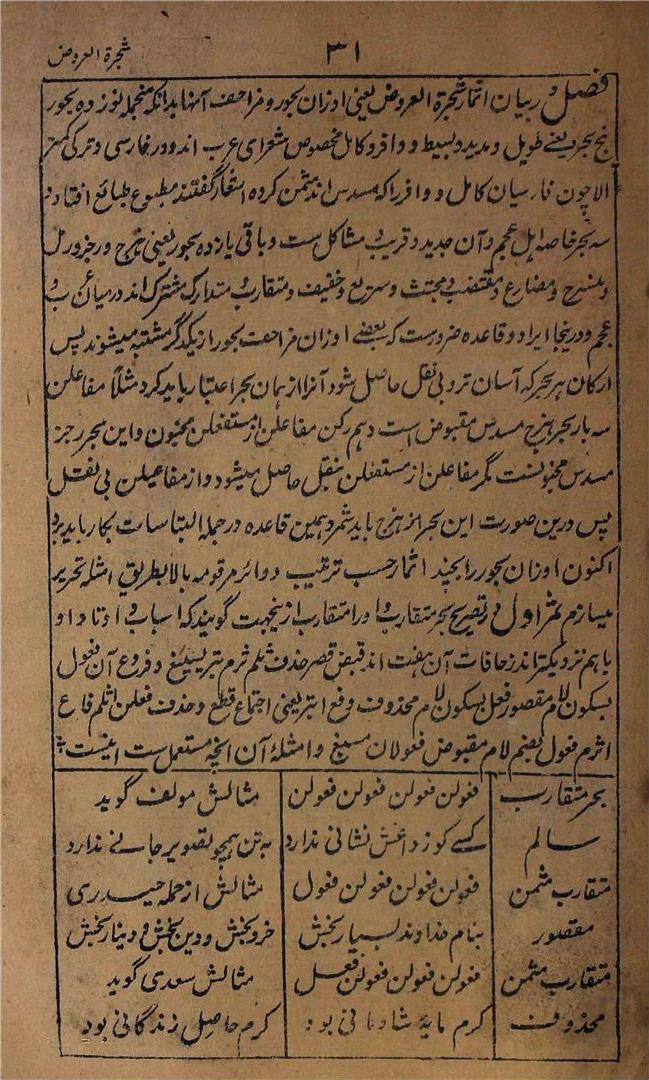 ۳۱ شجرة العروض
فصل در بیان اثمار شجرة العروض یعنی اوزان بحور و مزاحف آنها بدانکه منجمله نوزده بحور
پنج بحر یعنے طویل و مدید و بسیط و وافر و کامل مخصوص شعرای عرب اند و در فارسی و ترکی کمتر
الا چون فارسیان کامل و وافر را که مسدس اند مثمن کرده اشعار گفتند مطبوع طبائع افتاد و
سه بحر خاصه اهل عجم و آن جدید و قریب و مشاکل ست و باقی یازده بحور یعنی هزج و رجز و رمل
و منسرح و مضارع و مقتضب و مجتث و سریع و خفیف و متقارب و متدارک مشترک اند در میان عرب و
عجم و درینجا ایراد قاعده ضرورست که بعضے اوزان مزاحف بحور از یکدگر مشتبه میشوند پس
ارکان هر بحر که آسان تر و بی نقل حاصل شود آنرا ازهمان بحر اعتبار باید کرد مثلاً مفاعلن
سه بار بحر هزج مسدس مقبوض است و هم رکن مفاعلن از مستفعلن مخبون و این بحر رجز
مسدس مخبونست مگر مفاعلن از مستفعلن بنقل حاصل میشود و از مفاعیلن بی نقل
پس درین صورت این بحر از هزج باید شمرد و همین قاعده در جمله التباسات بکار باید برد
اکنون اوزان بحور را بچند اثمار حسب ترتیب دوائر مرقومه بالا بطریق امثله تحریر
میسازم ثمر اول در تصریح بحر متقارب و او را متقارب ازینجهت گویند که اسباب و اوتاد او
باهم نزدیکتر اند زحافات آن هفت اند قبض قصر حذف ثلم ثرم بتر تسبیغ و فروع آن فعول
بسکون لام مقصور فعل بسکون لام محذوف و فع ابتر یعنی اجتماع قطع و حذف فعلن اثلم فاع
اثرم فعول بضم لام مقبوض فعولان مسبغ و امثلهٔ آن آنچه مستعمل ست اینست
بحر متقارب فعولن فعولن فعولن فعولن مثالش مولف گوید
سالم کسے کو ز داغش نشانی ندارد به تن همچو تصویر جانے ندارد
متقارب مثمن فعولن فعولن فعولن فعول مثالش از حمله حیدری
مقصور بنام خداوند بسیار بخش خرد بخش و دین بخش و دینار بخش
متقارب مثمن فعولن فعولن فعولن فعل مثالش سعدی گوید
محذوف کرم مایهٔ شادمانی بود کرم حاصل زندگانی بود